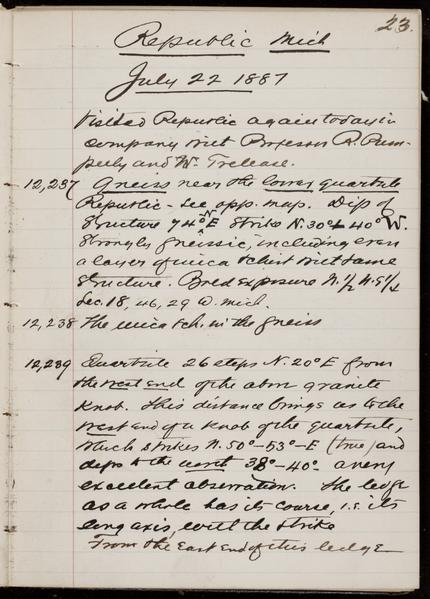 23.
Republic Mich
July 22 1887
Visited Republic again today in
company with Professor R. Pum-
pelly and Wm Trelease.
12,237 Gneiss near the lower quartzite
Republic - see opp. map. Dip of
structure 74° N E Strike N. 30° 40° W.
Strongly gneissic, including even
a layer of mica schist with same
structure. Bred exposure N. 1/2 N.
Sec. 18, 46, 29 W. Mich.
12,238 The mica sch. in the gneiss
12,239 Quartzite 26 steps N. 20° E from
the west end of the above granite
knob. This distance brings us to the
west end of a knob of the quartzite,
which strikes N. 50°-53°-E (true) and
dips to the north 38°-40°- a very
excellent observation. The ledge
as a whole has its course, i.e. its
long axis, with the strike
From the East end of this ledge